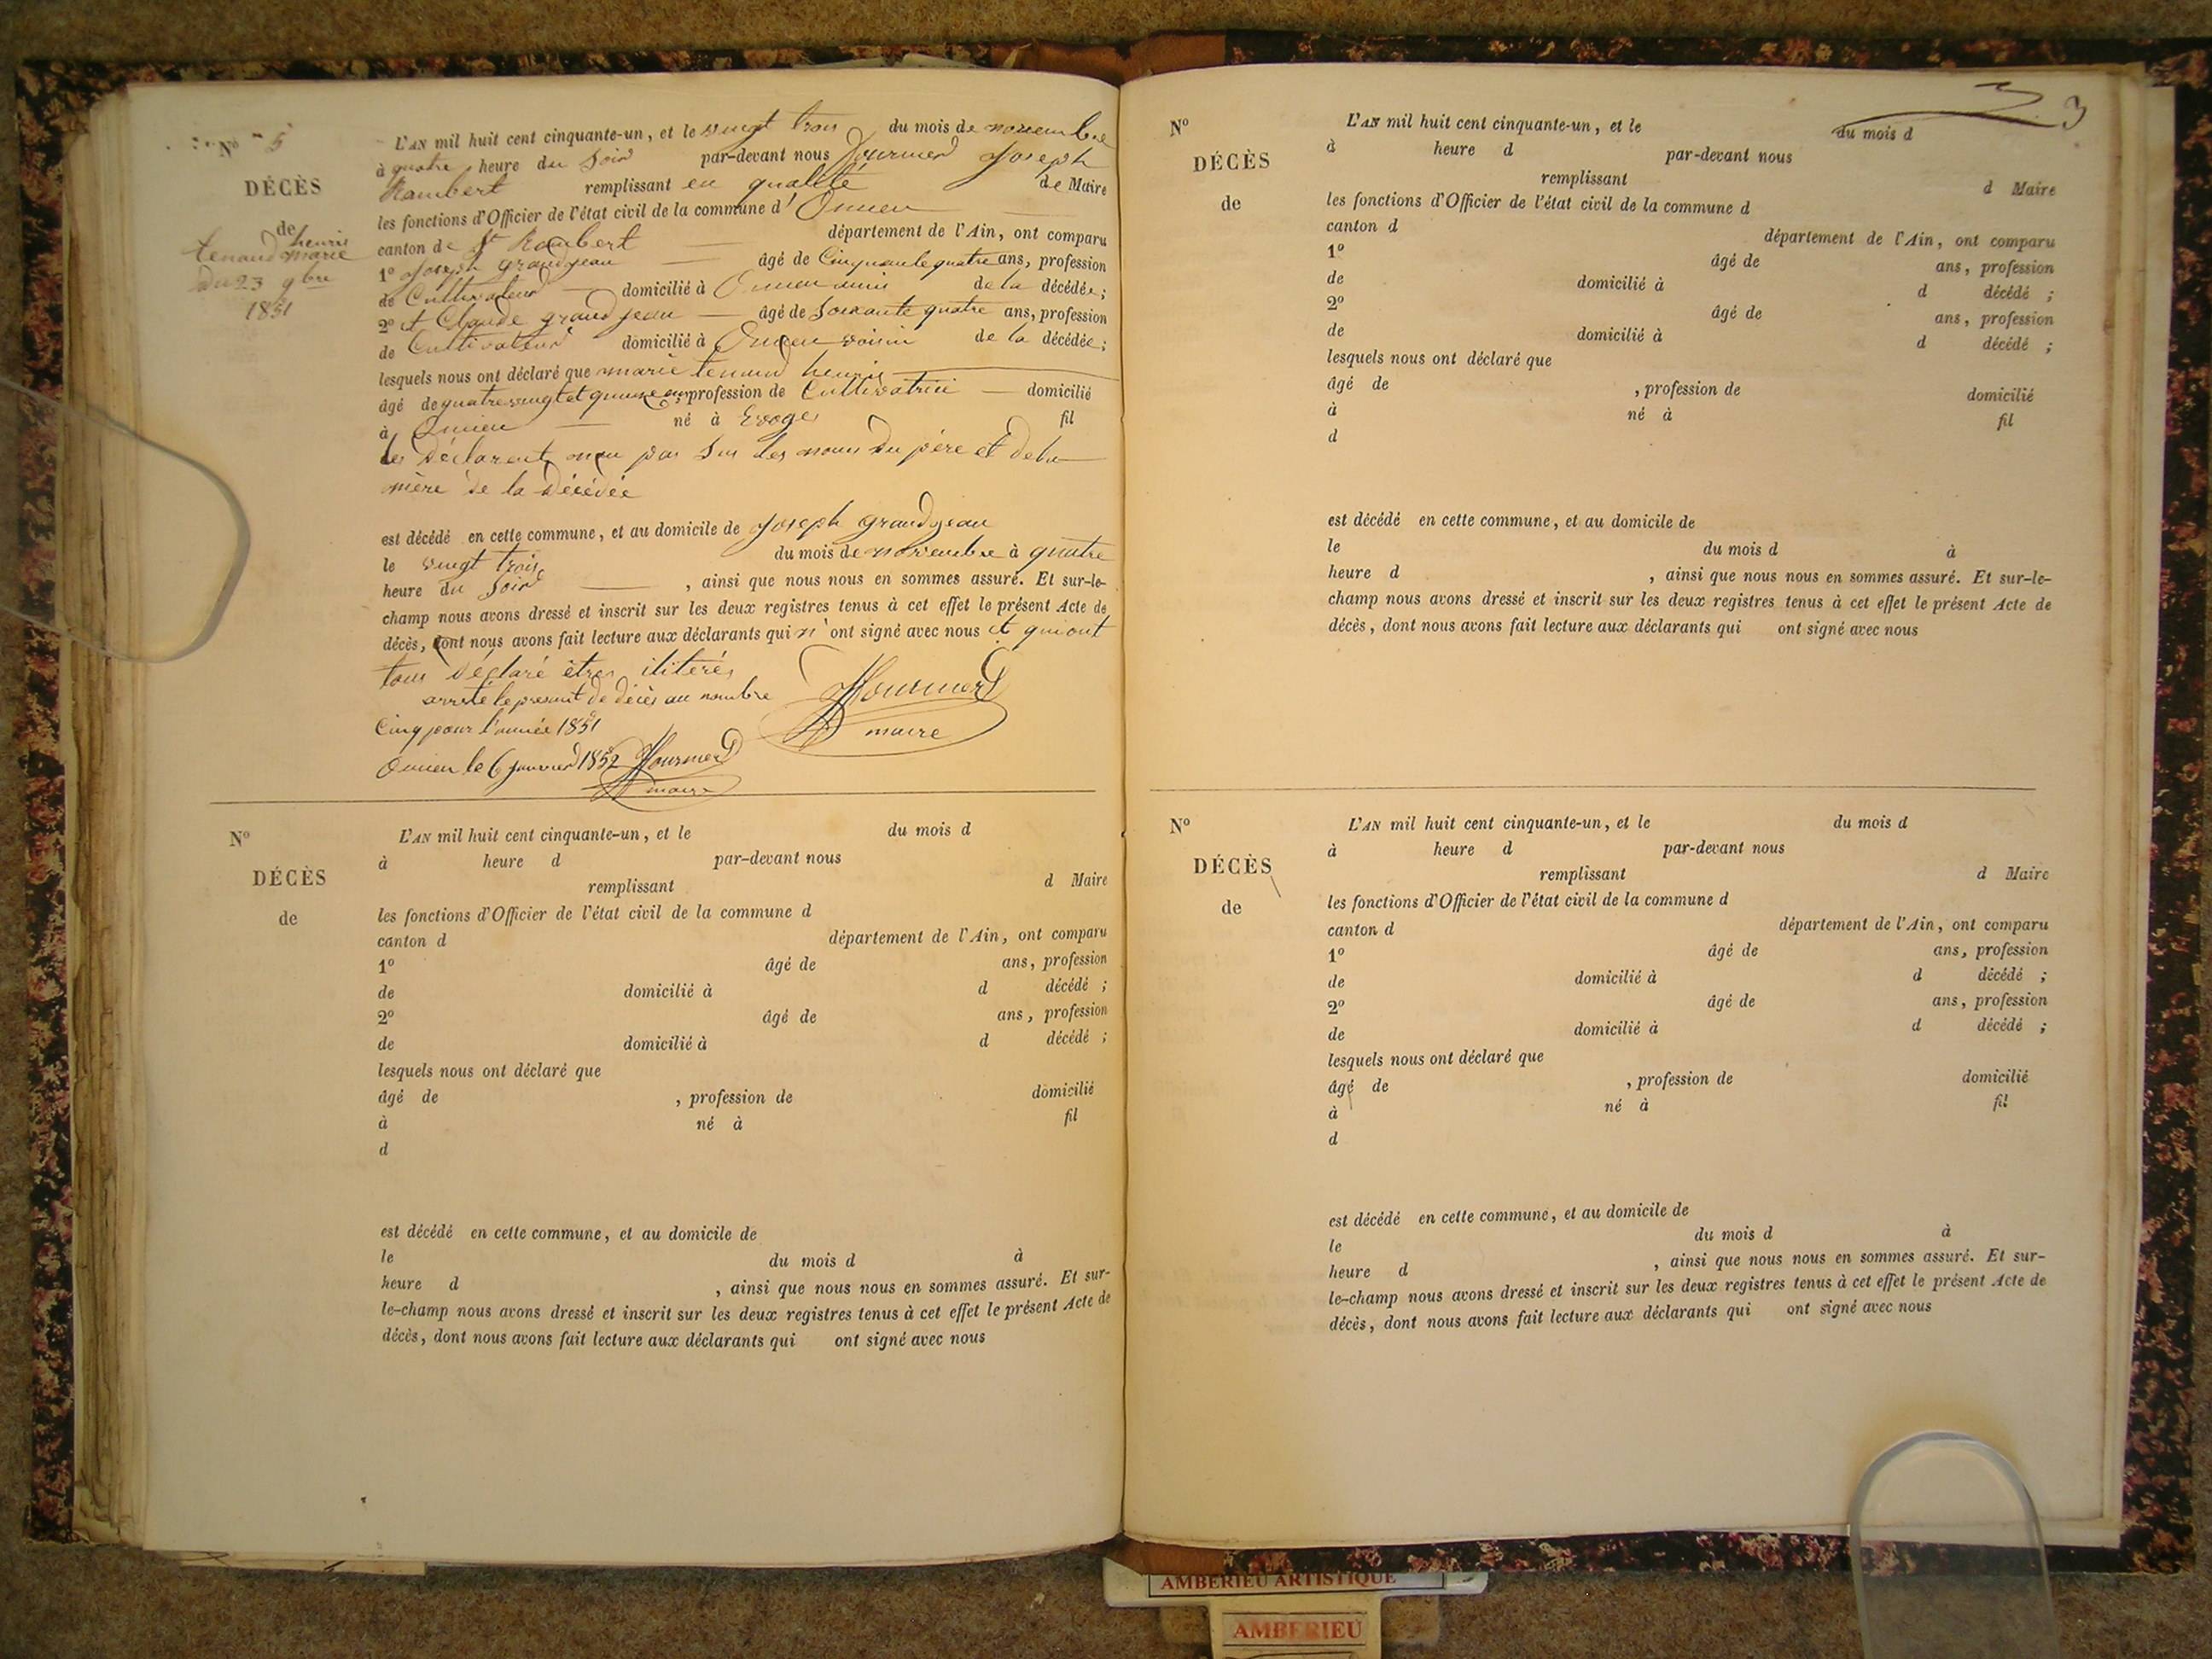 N° 5
DÉCÈS
de
henris
tenand marie
du 23 9bre
1851
L'AN mil huit cent cinquante-un, et le vingt trois du mois de novembre
à quatre heure du Soir par-devant nous fournier Joseph
Rambert remplissant en qualité de Maire
les fonctions d'Officier de l'état civil de la commune d' Oncieu
canton de St Rambert département de l'Ain, ont comparu
1° Joseph grandjean âgé de Cinquante quatre ans, profession
de Cultivateur domicilié à Oncieu amis de la décédée;
2° et Claude grand jean âgé de Soixante quatre ans, profession
de Cultivateur domicilié à Oncieu voisin de la décédée;
lesquels nous ont déclaré que marie tenand henris
âgé de quatrevingt et quinze ans, profession de Cultivatrice domicilié
à Oncieu né à Evoges fil
les déclarent pas Sus les noms du père et de la
mère de la décédée
est décédé en cette commune, et au domicile de Joseph grandjean
le vingt trois du mois de novembre à quatre
heure du Soir, ainsi que nous nous en sommes assuré. Et sur-le-
champ nous avons dressé et inscrit sur les deux registres tenus à cet effet le présent Acte de
décès, dont nous avons fait lecture aux déclarants qui n'ont signé avec nous et qui ont
tous déclaré êtres ilitérés
arreté le présent de décès au nombre
Cinq pour l'année 1851
maire
Oncieu le 6 janvier 1852
maire
N°
DÉCÈS
de
L'AN mil huit cent cinquante-un, et le du mois d
à heure d par-devant nous
remplissant d Maire
les fonctions d'Officier de l'état civil de la commune d
canton d département de l'Ain, ont comparu
1° âgé de ans, profession
de domicilié à d décédé ;
2° âgé de ans, profession
de domicilié à d décédé ;
lesquels nous ont déclaré que
âgé de , profession de domicilié
à né à fil
d
est décédé en cette commune, et au domicile de
le du mois d à
heure d , ainsi que nous nous en sommes assuré. Et sur-
le-champ nous avons dressé et inscrit sur les deux registres tenus à cet effet le présent Acte de
décès, dont nous avons fait lecture aux déclarants qui ont signé avec nous
3
N°
DÉCÈS
de
L'AN mil huit cent cinquante-un, et le du mois d
à heure d par-devant nous
remplissant d Maire
les fonctions d'Officier de l'état civil de la commune d
canton d département de l'Ain, ont comparu
1° âgé de ans, profession
de domicilié à d décédé ;
2° âgé de ans, profession
de domicilié à d décédé ;
lesquels nous ont déclaré que
âgé de , profession de domicilié
à né à fil
d
est décédé en cette commune, et au domicile de
le du mois d à
heure d , ainsi que nous nous en sommes assuré. Et sur-le-
champ nous avons dressé et inscrit sur les deux registres tenus à cet effet le présent Acte de
décès, dont nous avons fait lecture aux déclarants qui ont signé avec nous
N°
DÉCÈS
de
L'AN mil huit cent cinquante-un, et le du mois d
à heure d par-devant nous
remplissant d Maire
les fonctions d'Officier de l'état civil de la commune d
canton d département de l'Ain, ont comparu
1° âgé de ans, profession
de domicilié à d décédé ;
2° âgé de ans, profession
de domicilié à d décédé ;
lesquels nous ont déclaré que
âgé de , profession de domicilié
à né à fil
d
est décédé en cette commune, et au domicile de
le du mois d à
heure d , ainsi que nous nous en sommes assuré. Et sur-
le-champ nous avons dressé et inscrit sur les deux registres tenus à cet effet le présent Acte de
décès, dont nous avons fait lecture aux déclarants qui ont signé avec nous
AMBERIEU ARTISTIQUE
AMBERIEU